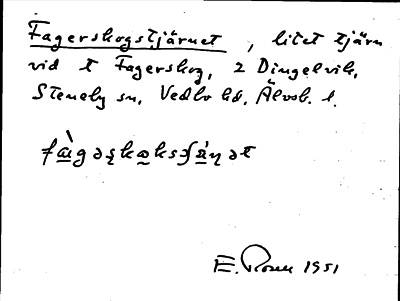 Fagerskogstjärnet, litet tjärn
vid t Fagerskog, 2 Dingelvik,
Steneby sn, Vedbo hd, Älvsb. l.
E. Rosén 1951